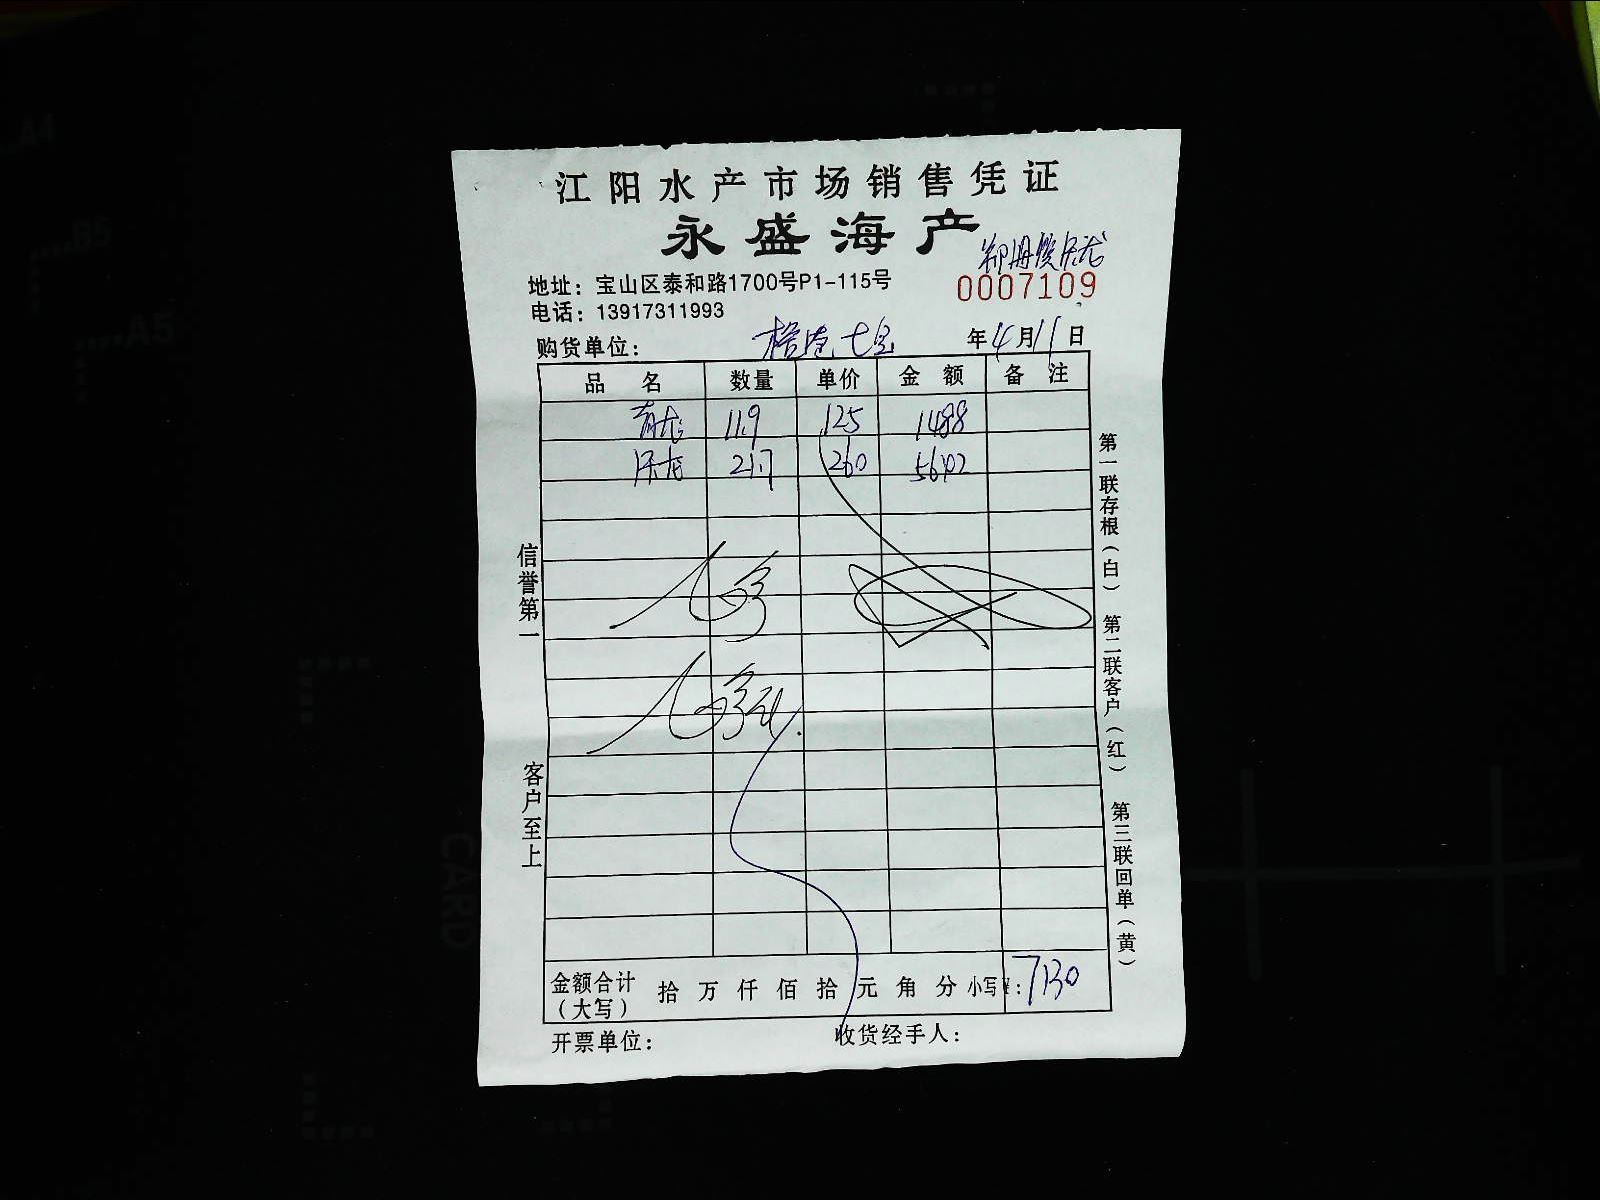 江阳水产市场销售凭证
永盛海产
地址：宝山区泰和路1700号P1-115号
0007109
电话：13917311993
购货单位： 七宝 年4月11日
品名 数量 单价 金额 备注
青龙 11.9 125 1488
澳龙 21.7 260 5642
信誉第一
客户至上
第一联存根（白） 第二联客户（红） 第三联回单（黄）
金额合计（大写） 拾 万 仟 佰 拾 元 角 分 小写¥：7130
开票单位： 收货经手人：